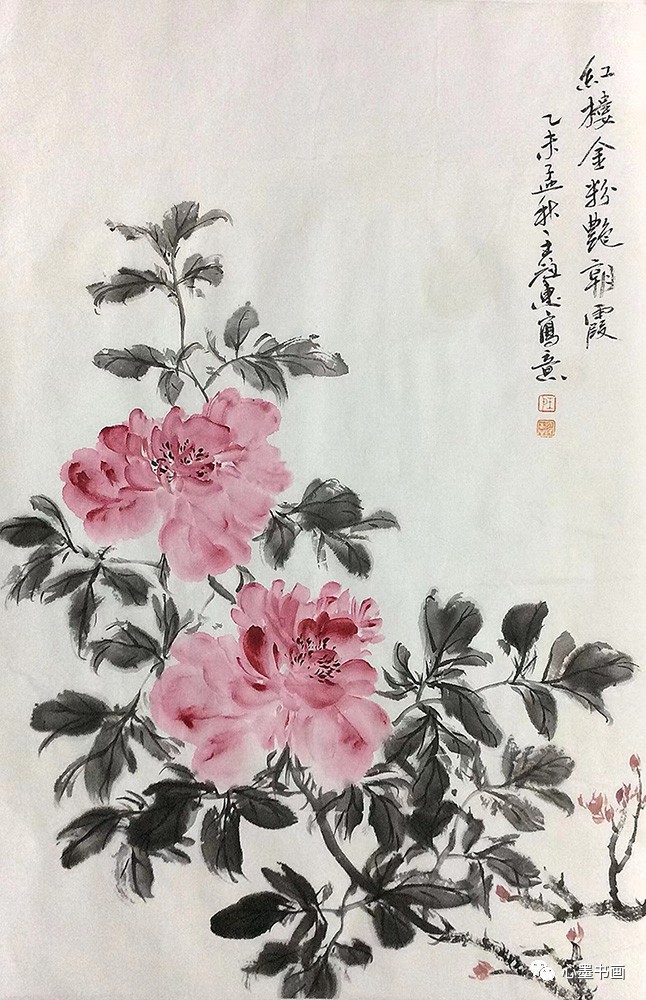 紅樓金粉艷朝霞
乙未孟秋
寫意
心墨书画